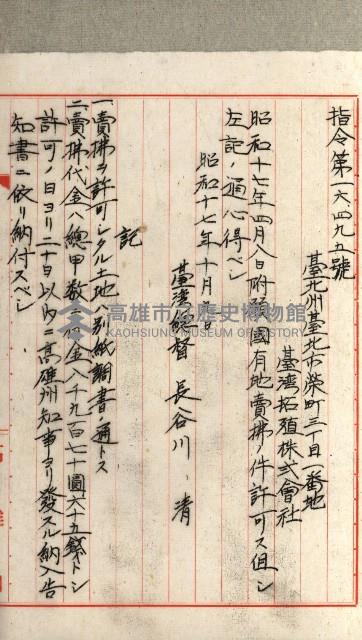 指令第一六四九五號
臺北州臺北市榮町三丁目一番地
臺灣拓殖株式會社
昭和十七年四月八日附願國有地賣拂ノ件許可ス但シ
左記ノ通心得ベシ
昭和十七年十月 日
臺灣總督 長谷川 清
記
一、賣拂ヲ許可シタル土地 別紙調書ノ通トス
二、賣拂代金ハ總甲數 金八千九百七十圓六十五錢トシ
許可ノ日ヨリ二十日以內ニ高雄州知事ヨリ發スル納入告
知書ニ依リ納付スベシ
高雄市立歷史博物館
KAOHSIUNG MUSEUM OF HISTORY